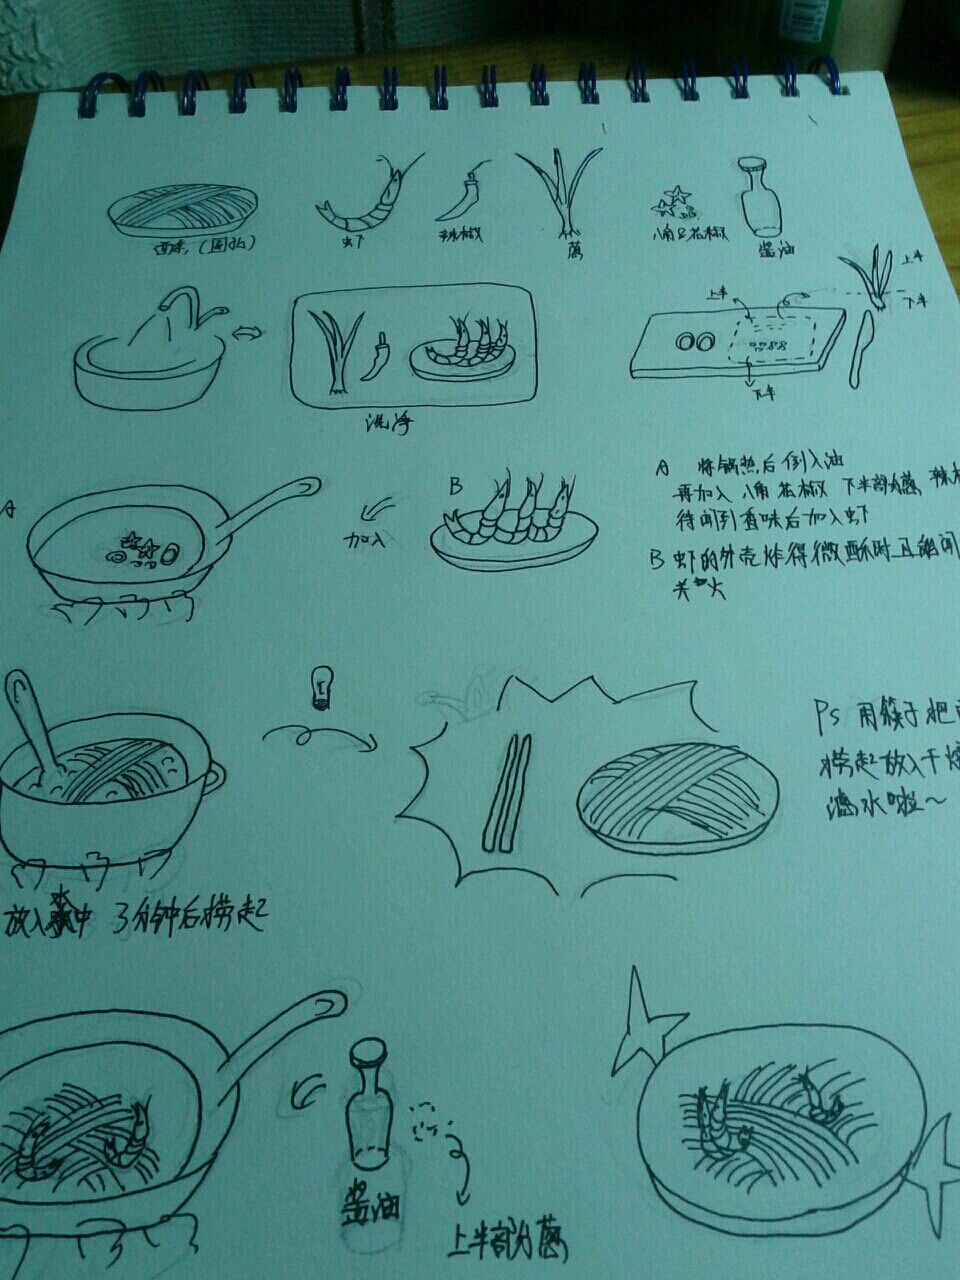 虾
辣椒
葱
八角及花椒
酱油
上半
下半
上半
下半
洗净
A
加入
B
A 将锅热后倒入油
再加入 八角 花椒 下半部分葱 辣
待闻到香味后加入虾
B 虾的外壳炸得微酥时且能闻
关火
PS 用筷子把
捞起放入干
滤水啦~
放入水中 3分钟后捞起
酱油
上半部分葱